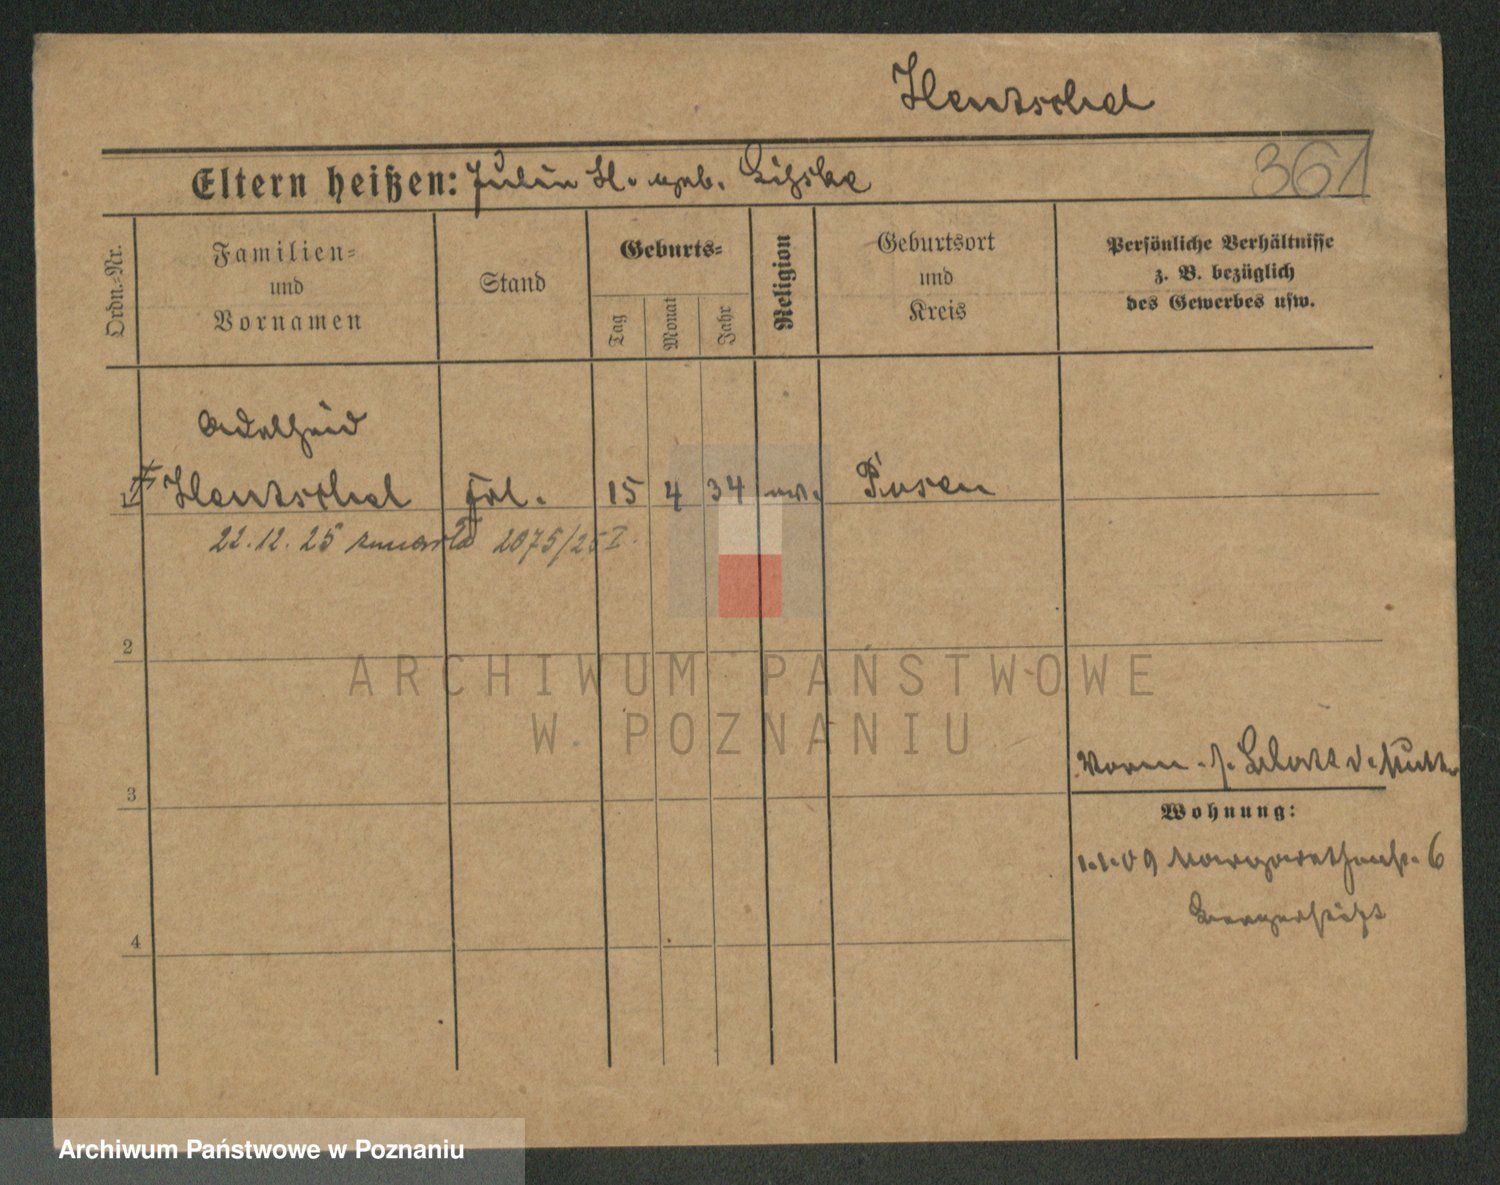 Hentschel
Eltern heißen: Julie H. geb.
361
Ordn.-Nr.
Familien-
und
Vornamen
Stand
Geburts-
Tag
Monat
Jahr
Religion
Geburtsort
und
Kreis
Persönliche Verhältnisse
z. B. bezüglich
des Gewerbes usw.
Adelheid
1 Hentschel Frl. 15 4 34 ev. Posen
22.12.25 zmarła 2075/25 I.
2
3
4
Vorm. s. Blatt d. Mutter
Wohnung:
1.1.09 Margarethenstr. 6
Bergerstift
ARCHIWUM PAŃSTWOWE
W POZNANIU
Archiwum Państwowe w Poznaniu